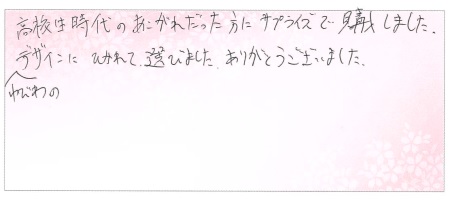 高校生時代のあこがれだった方にサプライズで購入しました。
デザインにひかれて、選びました。ありがとうございました。
ゆびわの